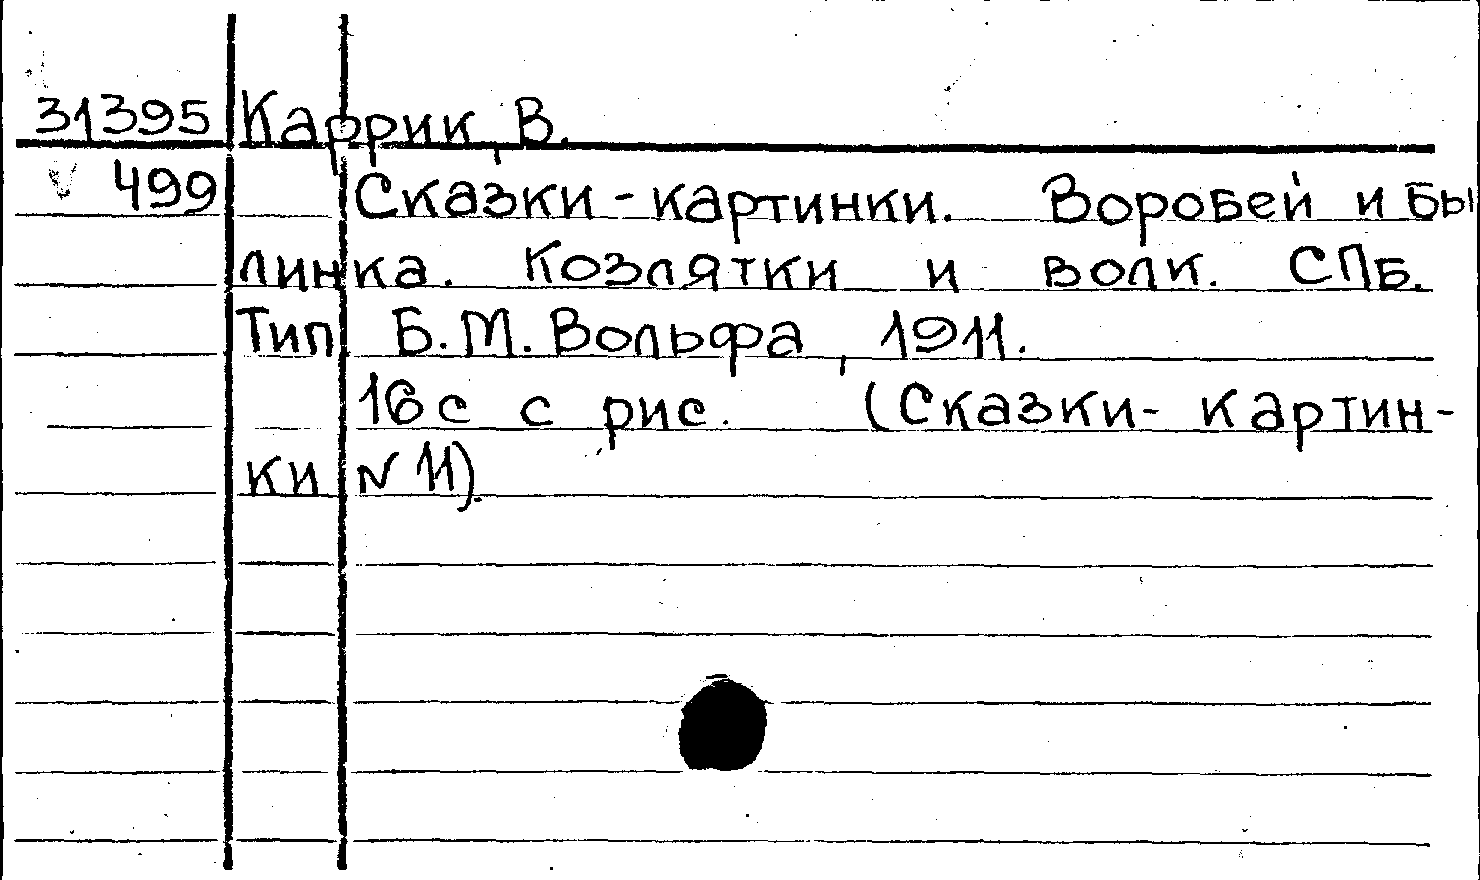 31395 Каррик, В.
V 499 Сказки-картинки. Воробей и бы
линка. Козлятки и волк. СПб.
Тип Б.М. Вольфа, 1911.
16 с с рис. (Сказки-картин-
ки N 11).